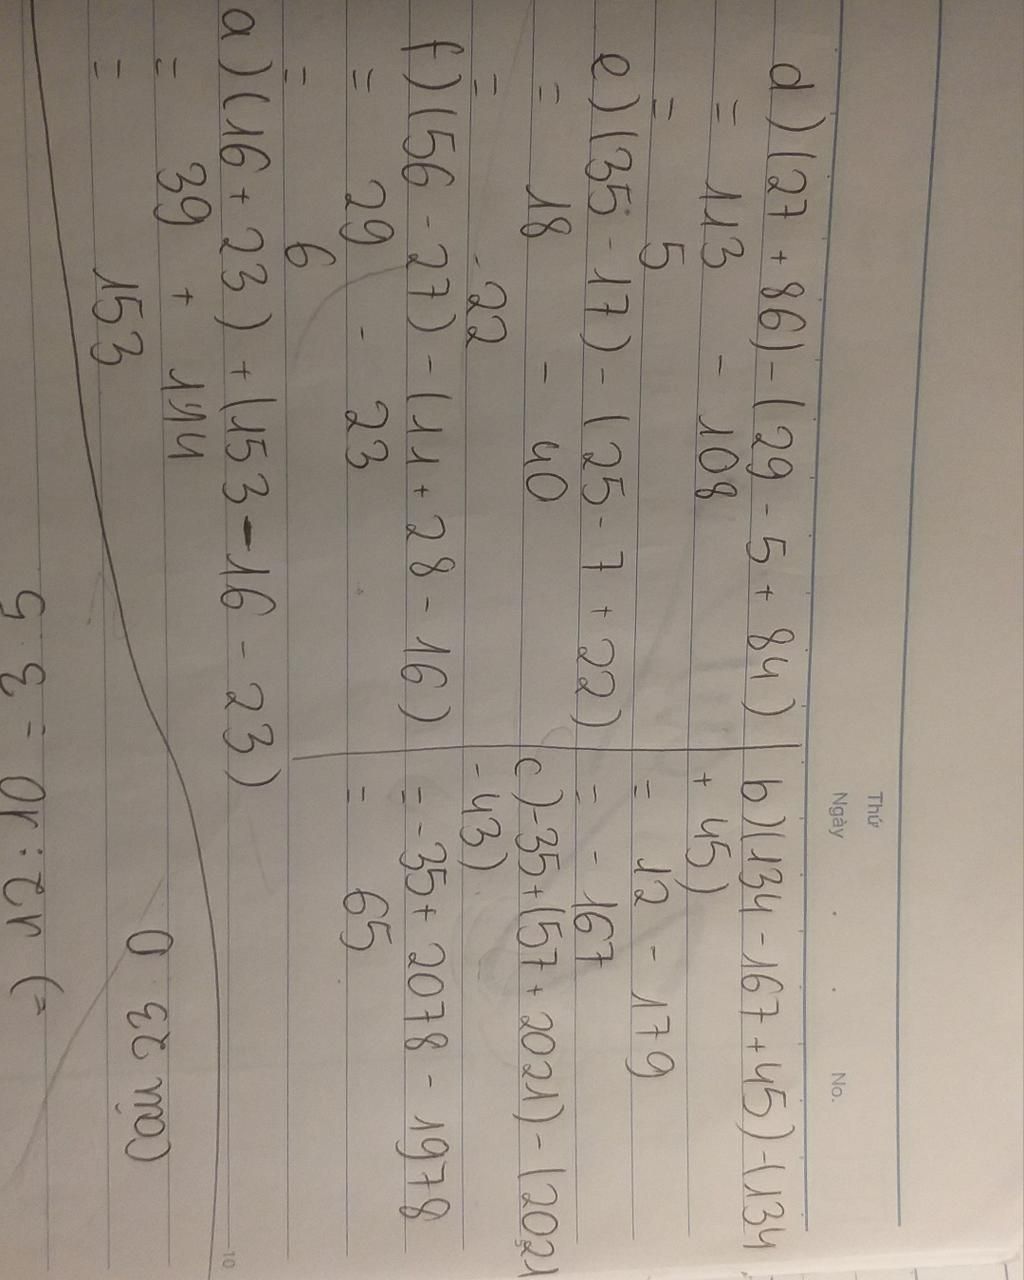 Thứ
Ngày . . No.
d) (27 + 86) - (29 - 5 + 84)
= 113 - 108
= 5
e) (35 - 17) - (25 - 7 + 22)
= 18 - 40
= -22
f) (56 - 27) - (11 + 28 - 16)
= 29 - 23
= 6
b) (134 - 167 + 45) - (134
+ 45)
= 12 - 179
= - 167
c) -35 + (57 + 2021) - (2021
- 43)
= -35 + 2078 - 1978
= 65
a) (16 + 23) + (153 - 16 - 23)
= 39 + 114
= 153
10
Câu 32 D
=) 12 : 10 = 3 5